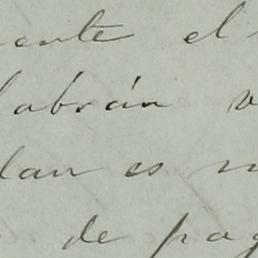 ente el
abrán v
lan es n
de pag